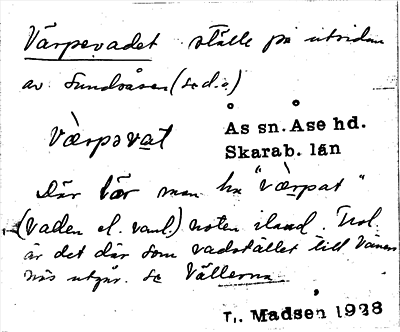 Värpevadet ställe på utsidan
av Sundsåsen (se d.o)
Værpəvat
Ås sn. Åse hd.
Skarab. län
Där lär man ha "værpat"
(vaden el. vanl.) noten iland. Trol.
är det där som vadstället till Väners
näs utgår. Se Vällerna
Madsén 1928